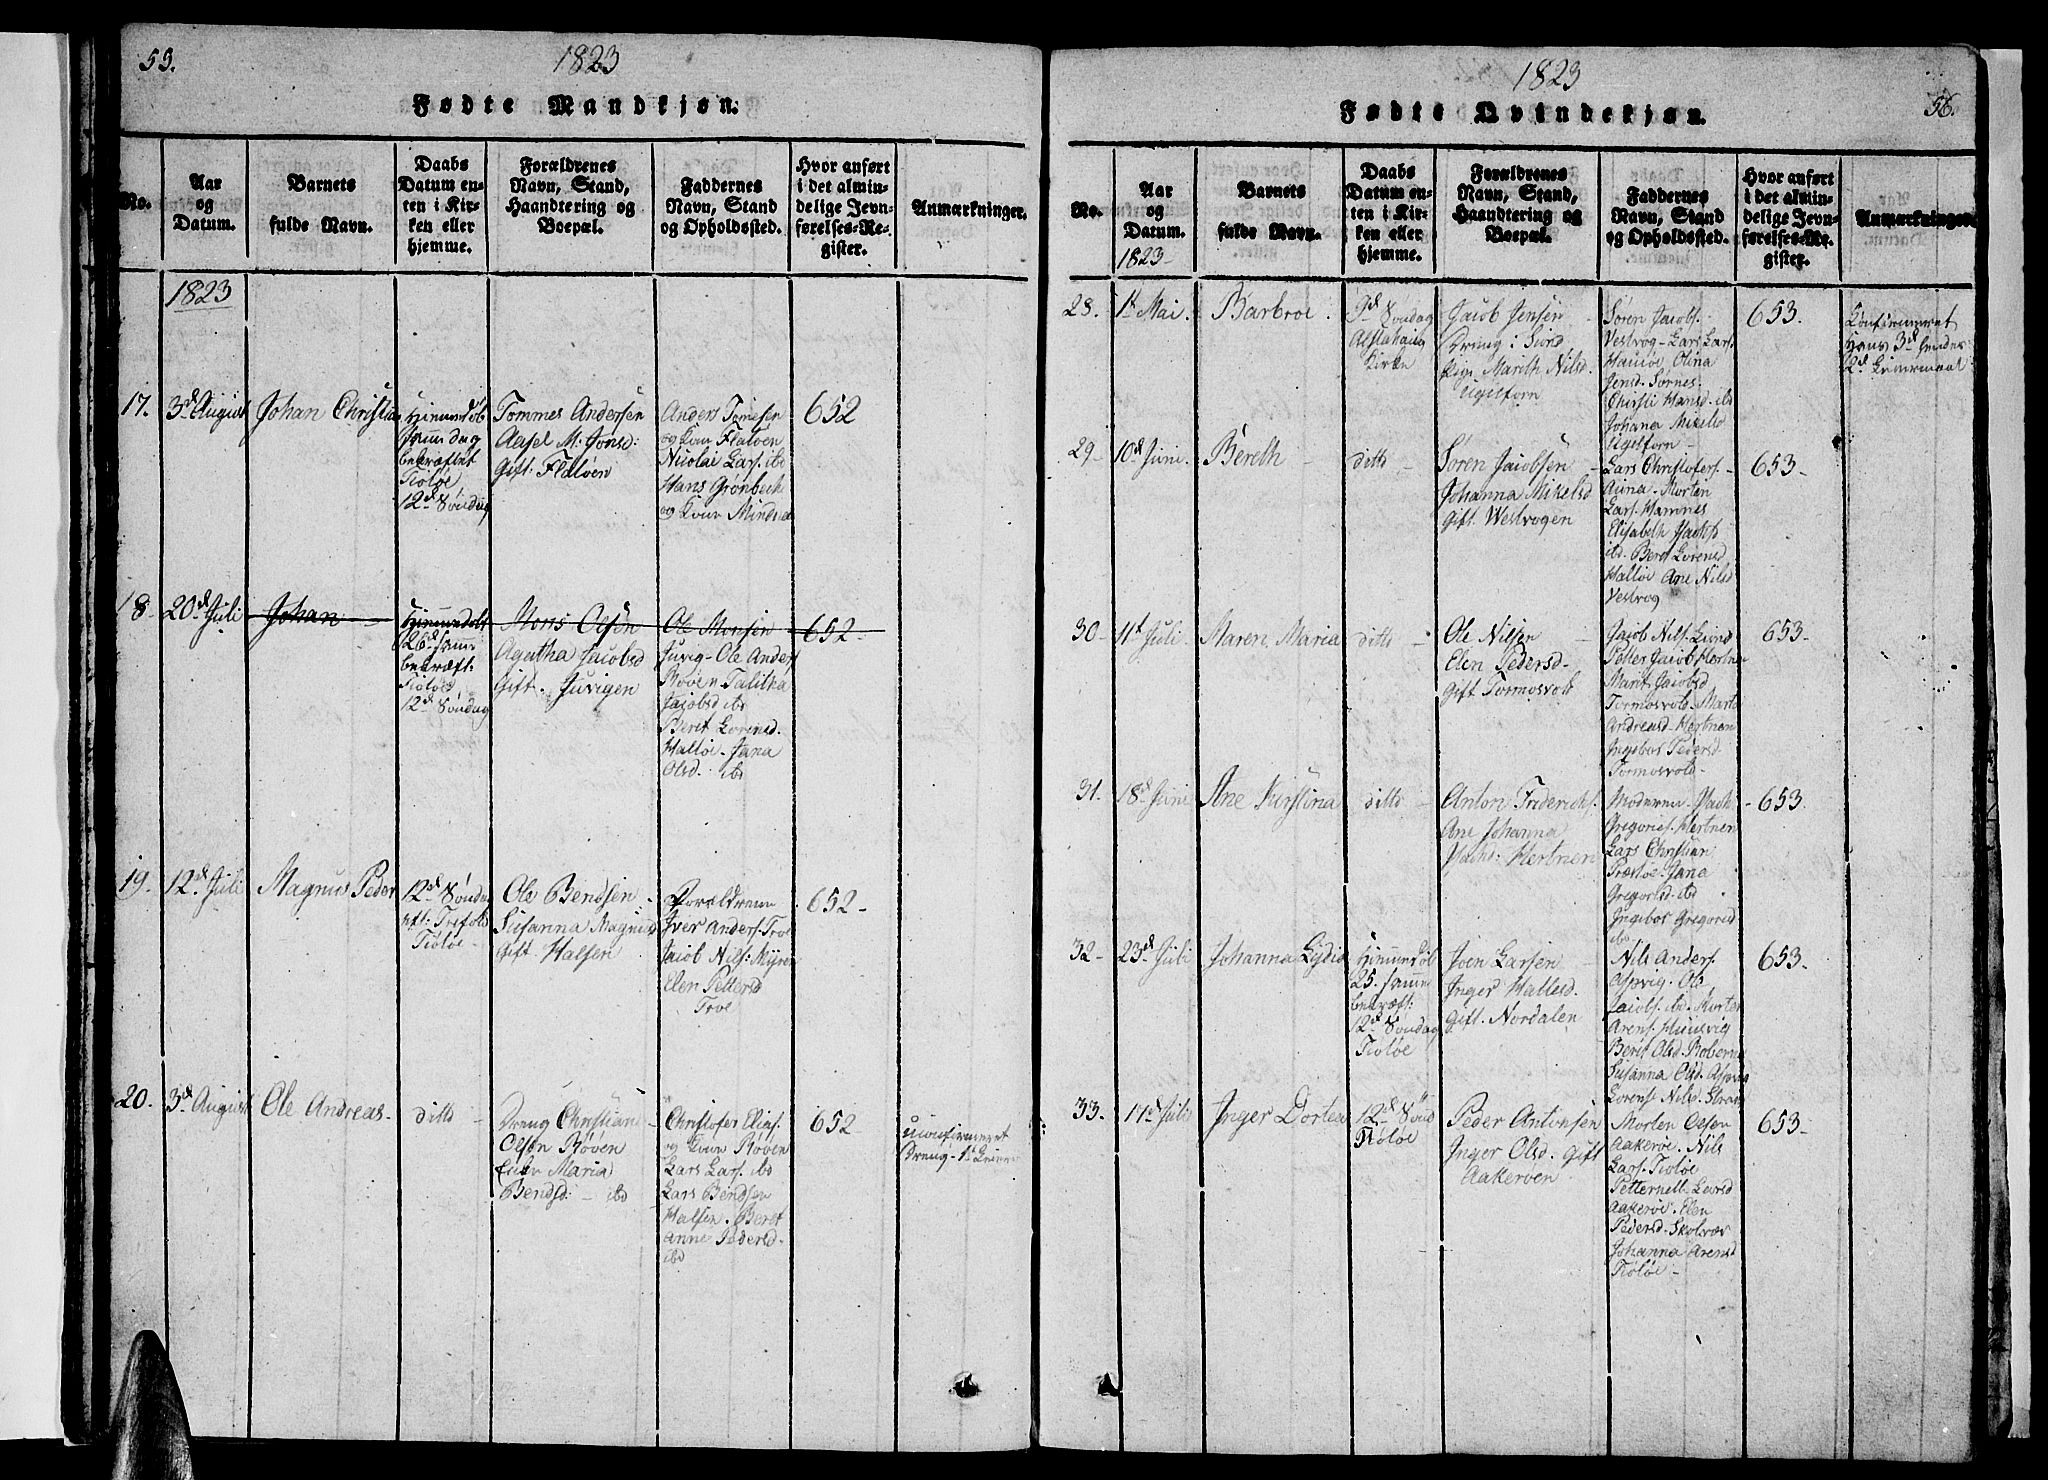 53.
1823
Fødte Mandkjøn.
No.
Aar
og
Datum.
Barnets
fulde Navn.
Daabs
Datum en-
ten i Kir-
ken eller
hjemme.
Forældrenes
Navn, Stand,
Haandtering og
Boepæl.
Faddernes
Navn, Stand
og Opholdssted.
Hvor anført
i det almin-
delige Jevn-
førelses-Re-
gister.
Anmærkninger.
1823
17.
3d August
Johan Christian
Hiemmedøb
bekræftet
Tiøtøe
12d Søndag
Tommes Andersen
M: Jonsd:
Gift. Flatøen
Anders Tomesen
og Kone Flatøen
Nicolai Lars. ibd
Hans Grønbech
og Kone Mindnæs
652
18.
20d Juli
Johan
Hiemmedøbt
26d
bekræft:
Tiøtøe
12d Søndag
Mons Olsen
Agatha Jacobsd
Gift. Juvigen
Ole Monsen
Juvig - Ole Anders
Røven - Talitha
Jacobsd ibd
Beret Lorensd.
Halløe - Jana
Olsd. ibd
652
19.
12d Juli
Magnus Peder
12d Søndag
eft: Trefold
Tiøtøe
Ole Bendsen
Susanna Magnusd
Gift. Halsen
Forældrene
Iver Anders. Troe
Jacob Nils: Myren
Elen Pettersd
Troe
652
20.
3d August
Ole Andreas
ditto
Dreng Christian
Olsen Røven
Maria
Bendsd: - ibd
Christofer Elias.
og Kone Røven
Lars Lars. ibd
Lars Bendsen
Halsen. Beret
Anne Pedersd.
ibd
652
Uconfirmeret
Dreng - 1t
1823
56.
Fødte Qvindekjøn.
No.
Aar
og
Datum.
1823
Barnets
fulde Navn.
Daabs
Datum en-
ten i Kir-
ken eller
hjemme.
Forældrenes
Navn, Stand,
Haandtering og
Boepæl.
Faddernes
Navn, Stand
og Opholdssted.
Hvor anført
i det almin-
delige Jevn-
førelses-Re-
gister.
Anmærkninger
28.
1t Mai.
Barbroe
9d Søndag
Alstahaug
Kirke
Jacob Jensen
Dreng i
Pige Marith Nilsd.
Ugelforn
Søren Jacobs.
Vestvog - Lars Lars.
Hauøe Olina
Jensd. Sørnes.
Chirsti Hansd. ibd
Johana
Ugelforn
653.
Confirmeret
Hans 3d
2d Leiermaal
29
10d Juni.
Bereth
ditto
Søren Jacobsen
Johanna Mikelsd
Gift. Westvogen
Lars Christofers.
Morten
Lars. Hamnes
Elisabeth
ibd. Beret Lorensd
Halløe Ane Nilsd
Vestvog
653
30
11t Juli
Maren Maria
ditto
Ole Nilsen
Elen Pedersd
Gift Tormosvolt
Jacob Nils.
Petter Jacob. Hertnen
Marit Jacobsd
Tormosvold. Marte
Andreasd. Hertnen
Ingebor Pedersd
Tormosvold.
653
31.
18d Juni
Ane Kirstina
ditto
Anton Friderichs.
Ane Johanna
Hertnen
Moderen -
Gregories. Hertnen
Lars Christian
Præstøe. Jana
Gregorisd ibd
Ingebor Gregorisd
ibd
653
32
23d Juli
Johanna Lydia
Hiemmedøb
25.
bekræft:
12d Søndag
Tiøtøe
Joen Larsen
Inger Hallesd.
Gift. Nordalen
Nils Anders.
Aspvig. Ole
Jacobs. ibd. Morten
Arens.
Beret Olsd.
Susanna Olsd. Aspvig
Lorens Nils.
653
33.
17d Juli
Inger Dortea
12d Sønd
Tiøtøe
Peder Antonsen
Inger Olsd. Gift
Aakerøen
Morten Olsen
Aakerøe. Nils
Lars. Tiøtøe
Petternell
Aakerøe. Elen
Pedersd. Skolvær
Johanna Arensd
Tiøtøe
653